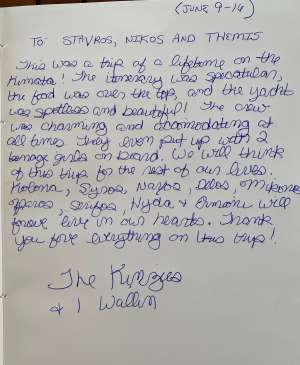 (JUNE 9-16)
TO: STAVROS, NIKOS AND THEMIS
This was a trip of a lifetime on the
Kimata! The itinerary was spectacular,
the food was over the top, and the yacht
was spotless and beautiful! The crew
was charming and accomodating at
all times. They even put up with 2
teenage girls on board. We will think
of this trip for the rest of our lives.
Kolona, Syros, Naxos, Delos,
Serifos, Hydra & Ermioni will
forever live in our hearts. Thank
you for everything on this trip!
The Kinzies
& 1 Wallin